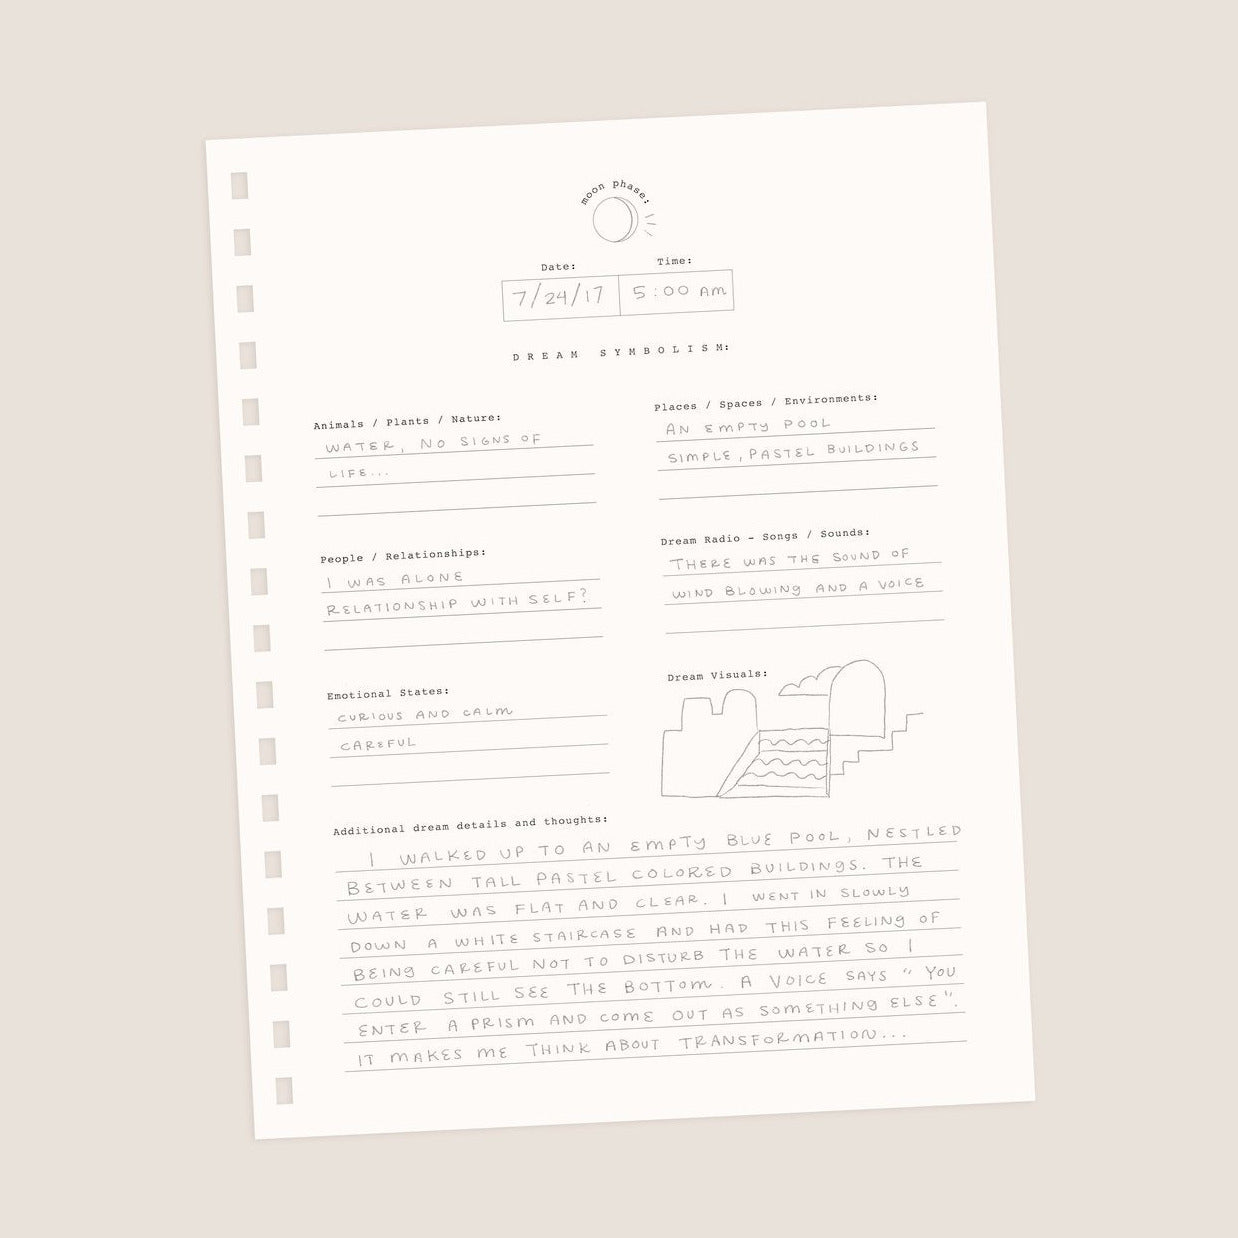 moon phase:
Date: Time:
7/24/17 5:00 AM
DREAM SYMBOLISM:
Animals / Plants / Nature:
WATER, NO SIGNS OF
LIFE...
Places / Spaces / Environments:
AN EMPTY POOL
SIMPLE, PASTEL BUILDINGS
People / Relationships:
I WAS ALONE
RELATIONSHIP WITH SELF?
Dream Radio - Songs / Sounds:
THERE WAS THE SOUND OF
WIND BLOWING AND A VOICE
Emotional States:
CURIOUS AND CALM
CAREFUL
Dream Visuals:
Additional dream details and thoughts:
I WALKED UP TO AN EMPTY BLUE POOL, NESTLED
BETWEEN TALL PASTEL COLORED BUILDINGS. THE
WATER WAS FLAT AND CLEAR. I WENT IN SLOWLY
DOWN A WHITE STAIRCASE AND HAD THIS FEELING OF
BEING CAREFUL NOT TO DISTURB THE WATER SO I
COULD STILL SEE THE BOTTOM. A VOICE SAYS "YOU
ENTER A PRISM AND COME OUT AS SOMETHING ELSE".
IT MAKES ME THINK ABOUT TRANSFORMATION...